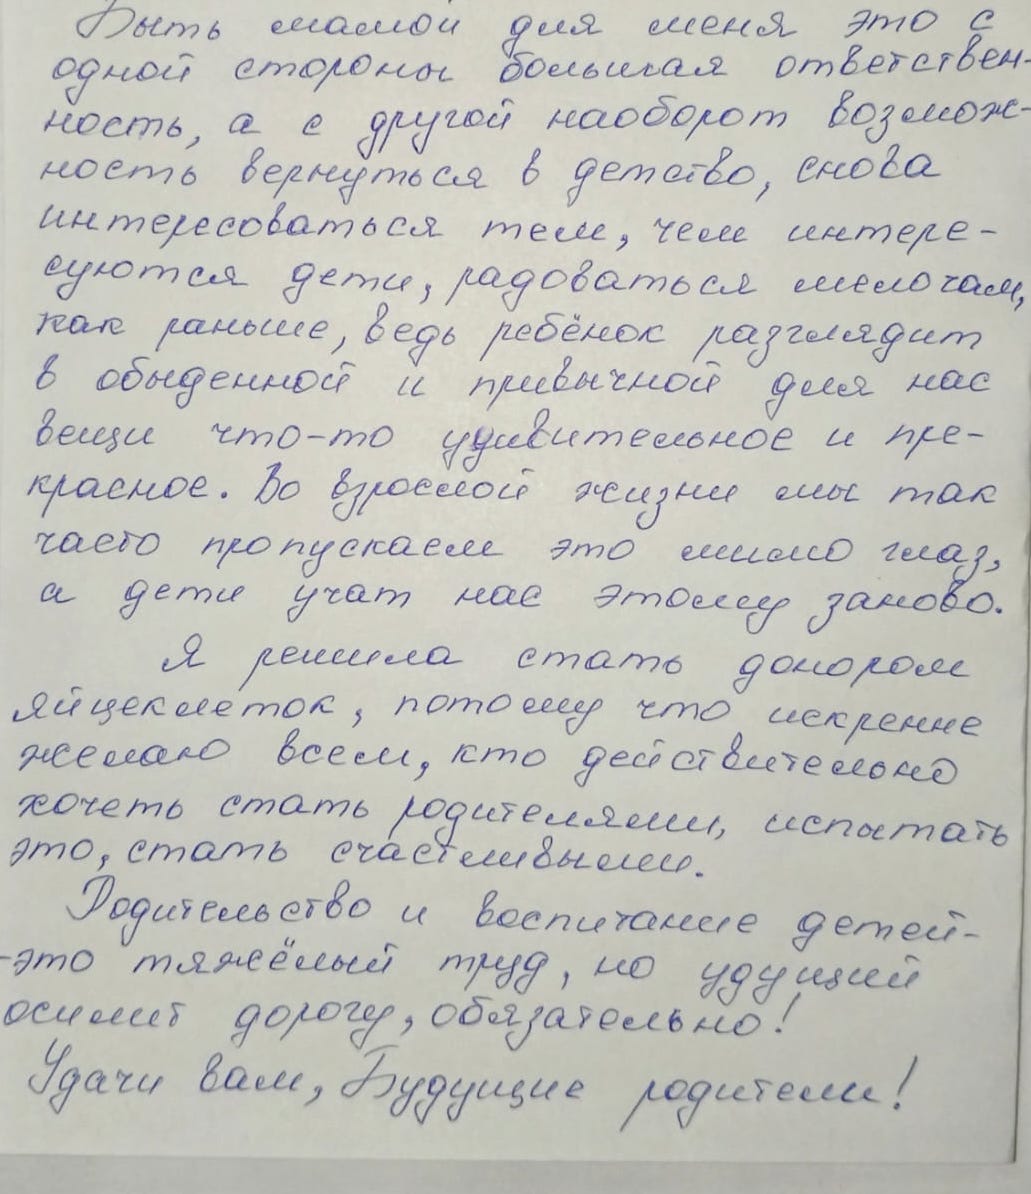 Быть мамой для меня это с
одной стороны большая ответствен-
ность, а с другой наоборот возмож-
ность вернуться в детство, снова
интересоваться тем, чем интере-
суются дети, радоваться мелочам,
как раньше, ведь ребёнок разглядит
в обыденной и привычной для нас
вещи что-то удивительное и пре-
красное. Во взрослой жизни мы так
часто пропускаем это мимо глаз,
а дети учат нас этому заново.
Я решила стать донором
яйцеклеток, потому что искренне
желаю всем, кто действительно
хочеть стать родителями, испытать
это, стать счастливыми.
Родительство и воспитание детей-
-это тяжёлый труд, но удущий
осилит дорогу, обязательно!
Удачи вам, Будущие родители!